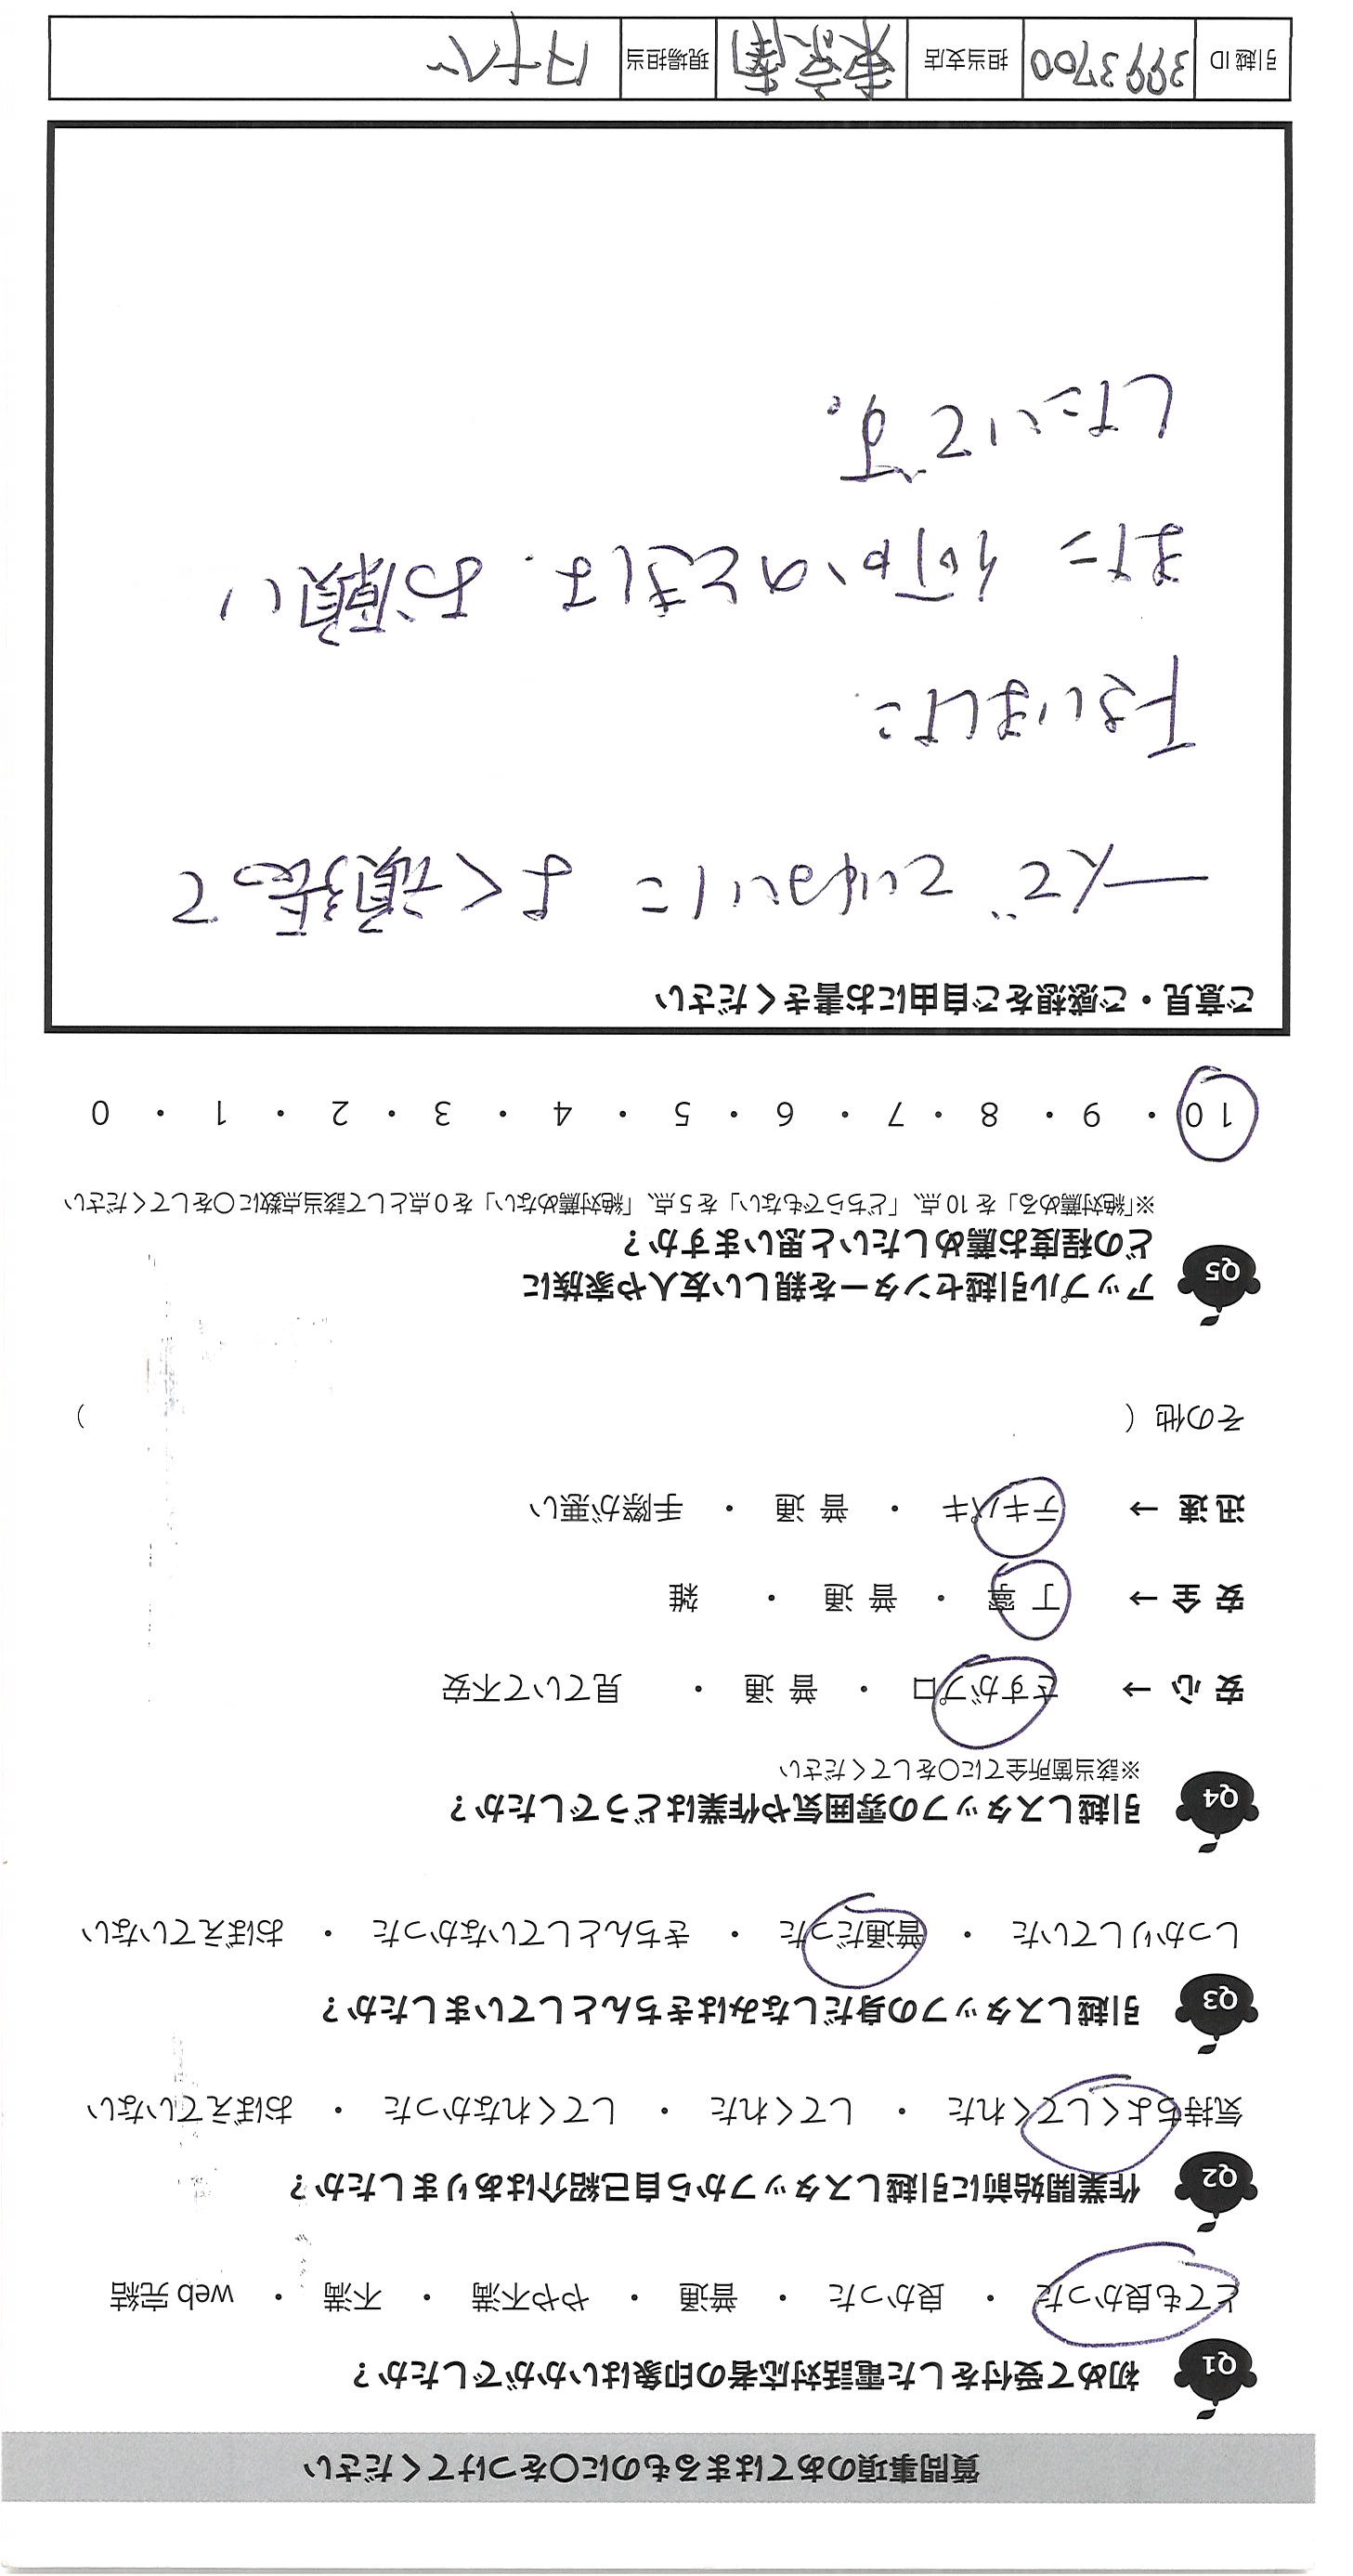 質問事項のあてはまるものに〇をつけてください
Q1 初めて受付をした電話対応者の印象はいかがでしたか？
とても良かった ・ 良かった ・ 普通 ・ やや不満 ・ 不満 ・ web 完結
Q2 作業開始前に引越しスタッフから自己紹介はありましたか？
気持ちよくしてくれた ・ してくれた ・ してくれなかった ・ おぼえていない
Q3 引越しスタッフの身だしなみはきちんとしていましたか？
しっかりしていた ・ 普通だった ・ きちんとしていなかった ・ おぼえていない
Q4 引越しスタッフの雰囲気や作業はどうでしたか？
※該当箇所全てに〇をしてください
安 心 → さすがプロ ・ 普 通 ・ 見ていて不安
安 全 → 丁 寧 ・ 普 通 ・ 雑
迅 速 → テキパキ ・ 普 通 ・ 手際が悪い
その他（ ）
Q5 アップル引越センターを親しい友人や家族に
どの程度お薦めしたいと思いますか？
※「絶対薦める」を 10 点、「どちらでもない」を 5 点、「絶対薦めない」を 0 点として該当点数に〇をしてください
10 ・ 9 ・ 8 ・ 7 ・ 6 ・ 5 ・ 4 ・ 3 ・ 2 ・ 1 ・ 0
ご意見・ご感想をご自由にお書きください
一人で ていねいに よく頑張って
下さいました.
また 何かのときは、お願い
したいです。
引越 ID 3993700 担当支店 東京南 現場担当 ワナベ